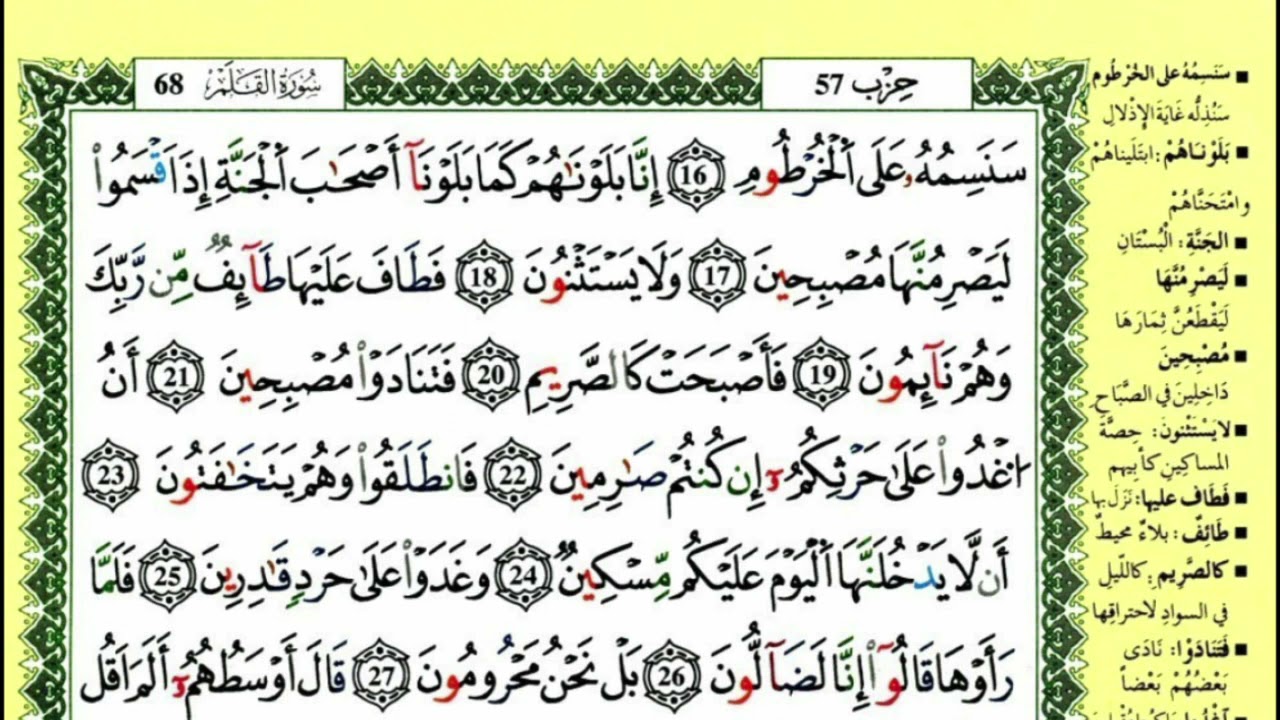 حِزْب 57
سُورَةُ القَلَم 68
سَنَسِمُهُۥ عَلَى اَ۬لْخُرْطُومِ 16 إِنَّا بَلَوْنَٰهُمْ كَمَا بَلَوْنَآ أَصْحَٰبَ اَ۬لْجَنَّةِ إِذَ اَقْسَمُواْ
لَيَصْرِمُنَّهَا مُصْبِحِينَ 17 وَلَا يَسْتَثْنُونَ 18 فَطَافَ عَلَيْهَا طَآئِفٌ مِّن رَّبِّكَ
وَهُمْ نَآئِمُونَ 19 فَأَصْبَحَتْ كَالصَّرِيمِ 20 فَتَنَادَوْاْ مُصْبِحِينَ 21 أَنُ
اُ۟غْدُواْ عَلَىٰ حَرْثِكُمُۥٓ إِن كُنتُمْ صَٰرِمِينَ 22 فَانطَلَقُواْ وَهُمْ يَتَخَٰفَتُونَ 23
أَن لَّا يَدْخُلَنَّهَا اَ۬لْيَوْمَ عَلَيْكُم مِّسْكِينٌ 24 وَغَدَوْاْ عَلَىٰ حَرْدٍ قَٰدِرِينَ 25 فَلَمَّا
رَأَوْهَا قَالُوٓاْ إِنَّا لَضَآلُّونَ 26 بَلْ نَحْنُ مَحْرُومُونَ 27 قَالَ أَوْسَطُهُمُۥٓ أَلَمَ اَقُل
■ سَنَسِمُهُ على الخُرْطُومِ
سَنُذِلُّه غَايَةَ الإِذْلالِ
■ بَلَوْنَاهُمْ: ابتَلَيناهُمْ
وامْتَحَنَّاهُمْ
■ الجَنَّةِ: الْبُسْتَانِ
■ لَيَصْرِمُنَّهَا
لَيَقْطَعُنَّ ثِمَارَهَا
■ مُصْبِحِينَ
دَاخِلِينَ في الصَّبَاحِ
■ لا يَسْتَثْنونَ: حِصَّةَ
المساكِينِ كأبِيهِم
■ فَطَافَ عليها: نَزَلَ بها
■ طَائِفٌ: بلاءٌ محيطٌ
■ كالصَّرِيمِ: كاللَّيلِ
في السوادِ لاحتراقِها
■ فَتَنَادَوْا: نَادَى
بَعْضُهُمْ بَعْضاً